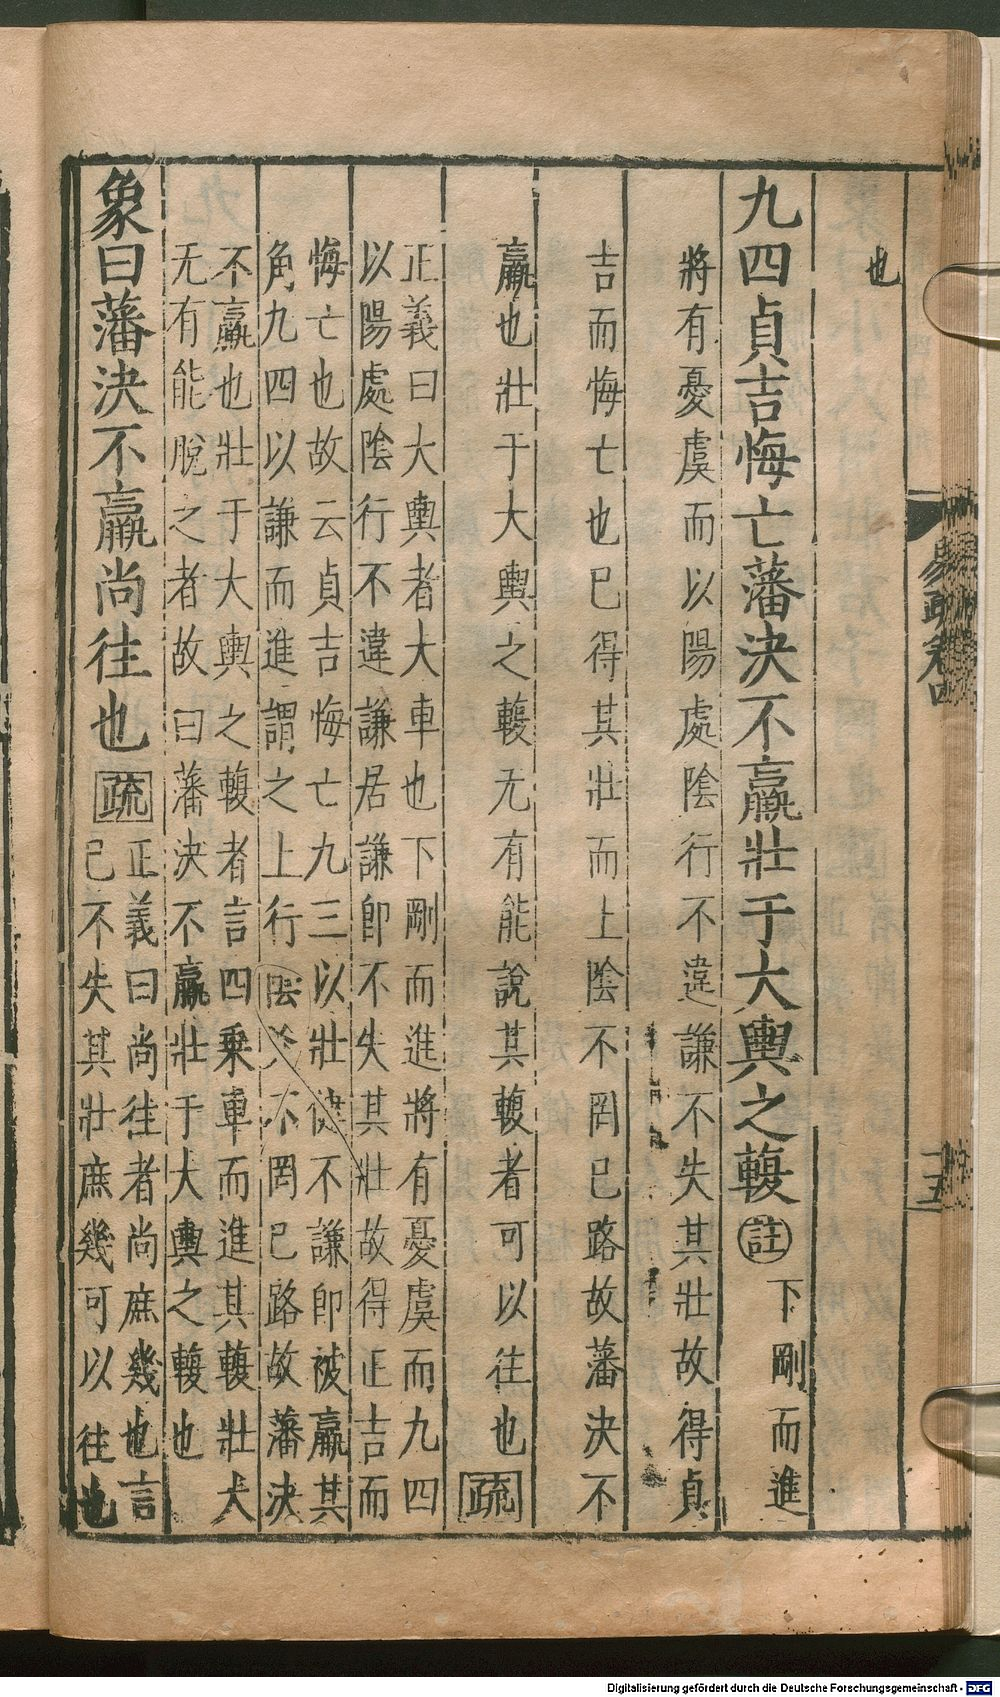 也
九四貞吉悔亡藩決不羸壯于大輿之輹註下剛而進
將有憂虞而以陽處陰行不違謙不失其壯故得貞
吉而悔亡也已得其壯而上陰不罔已路故藩決不
羸也壯于大輿之輹无有能說其輹者可以往也疏
正義曰大輿者大車也下剛而進將有憂虞而九四
以陽處陰行不違謙居謙卽不失其壯故得正吉而
悔亡也故云貞吉悔亡九三以壯健不謙卽被羸其
角九四以謙而進謂之上行陰爻不罔已路故藩決
不羸也壯于大輿之輹者言四乗車而進其輹壯大
无有能脫之者故曰藩決不羸壯于大輿之輹也
象曰藩決不羸尚往也疏
正義曰尚往者尚庶幾也言
已不失其壯庶幾可以往也
易疏卷四
二五
Digitalisierung gefördert durch die Deutsche Forschungsgemeinschaft - DFG